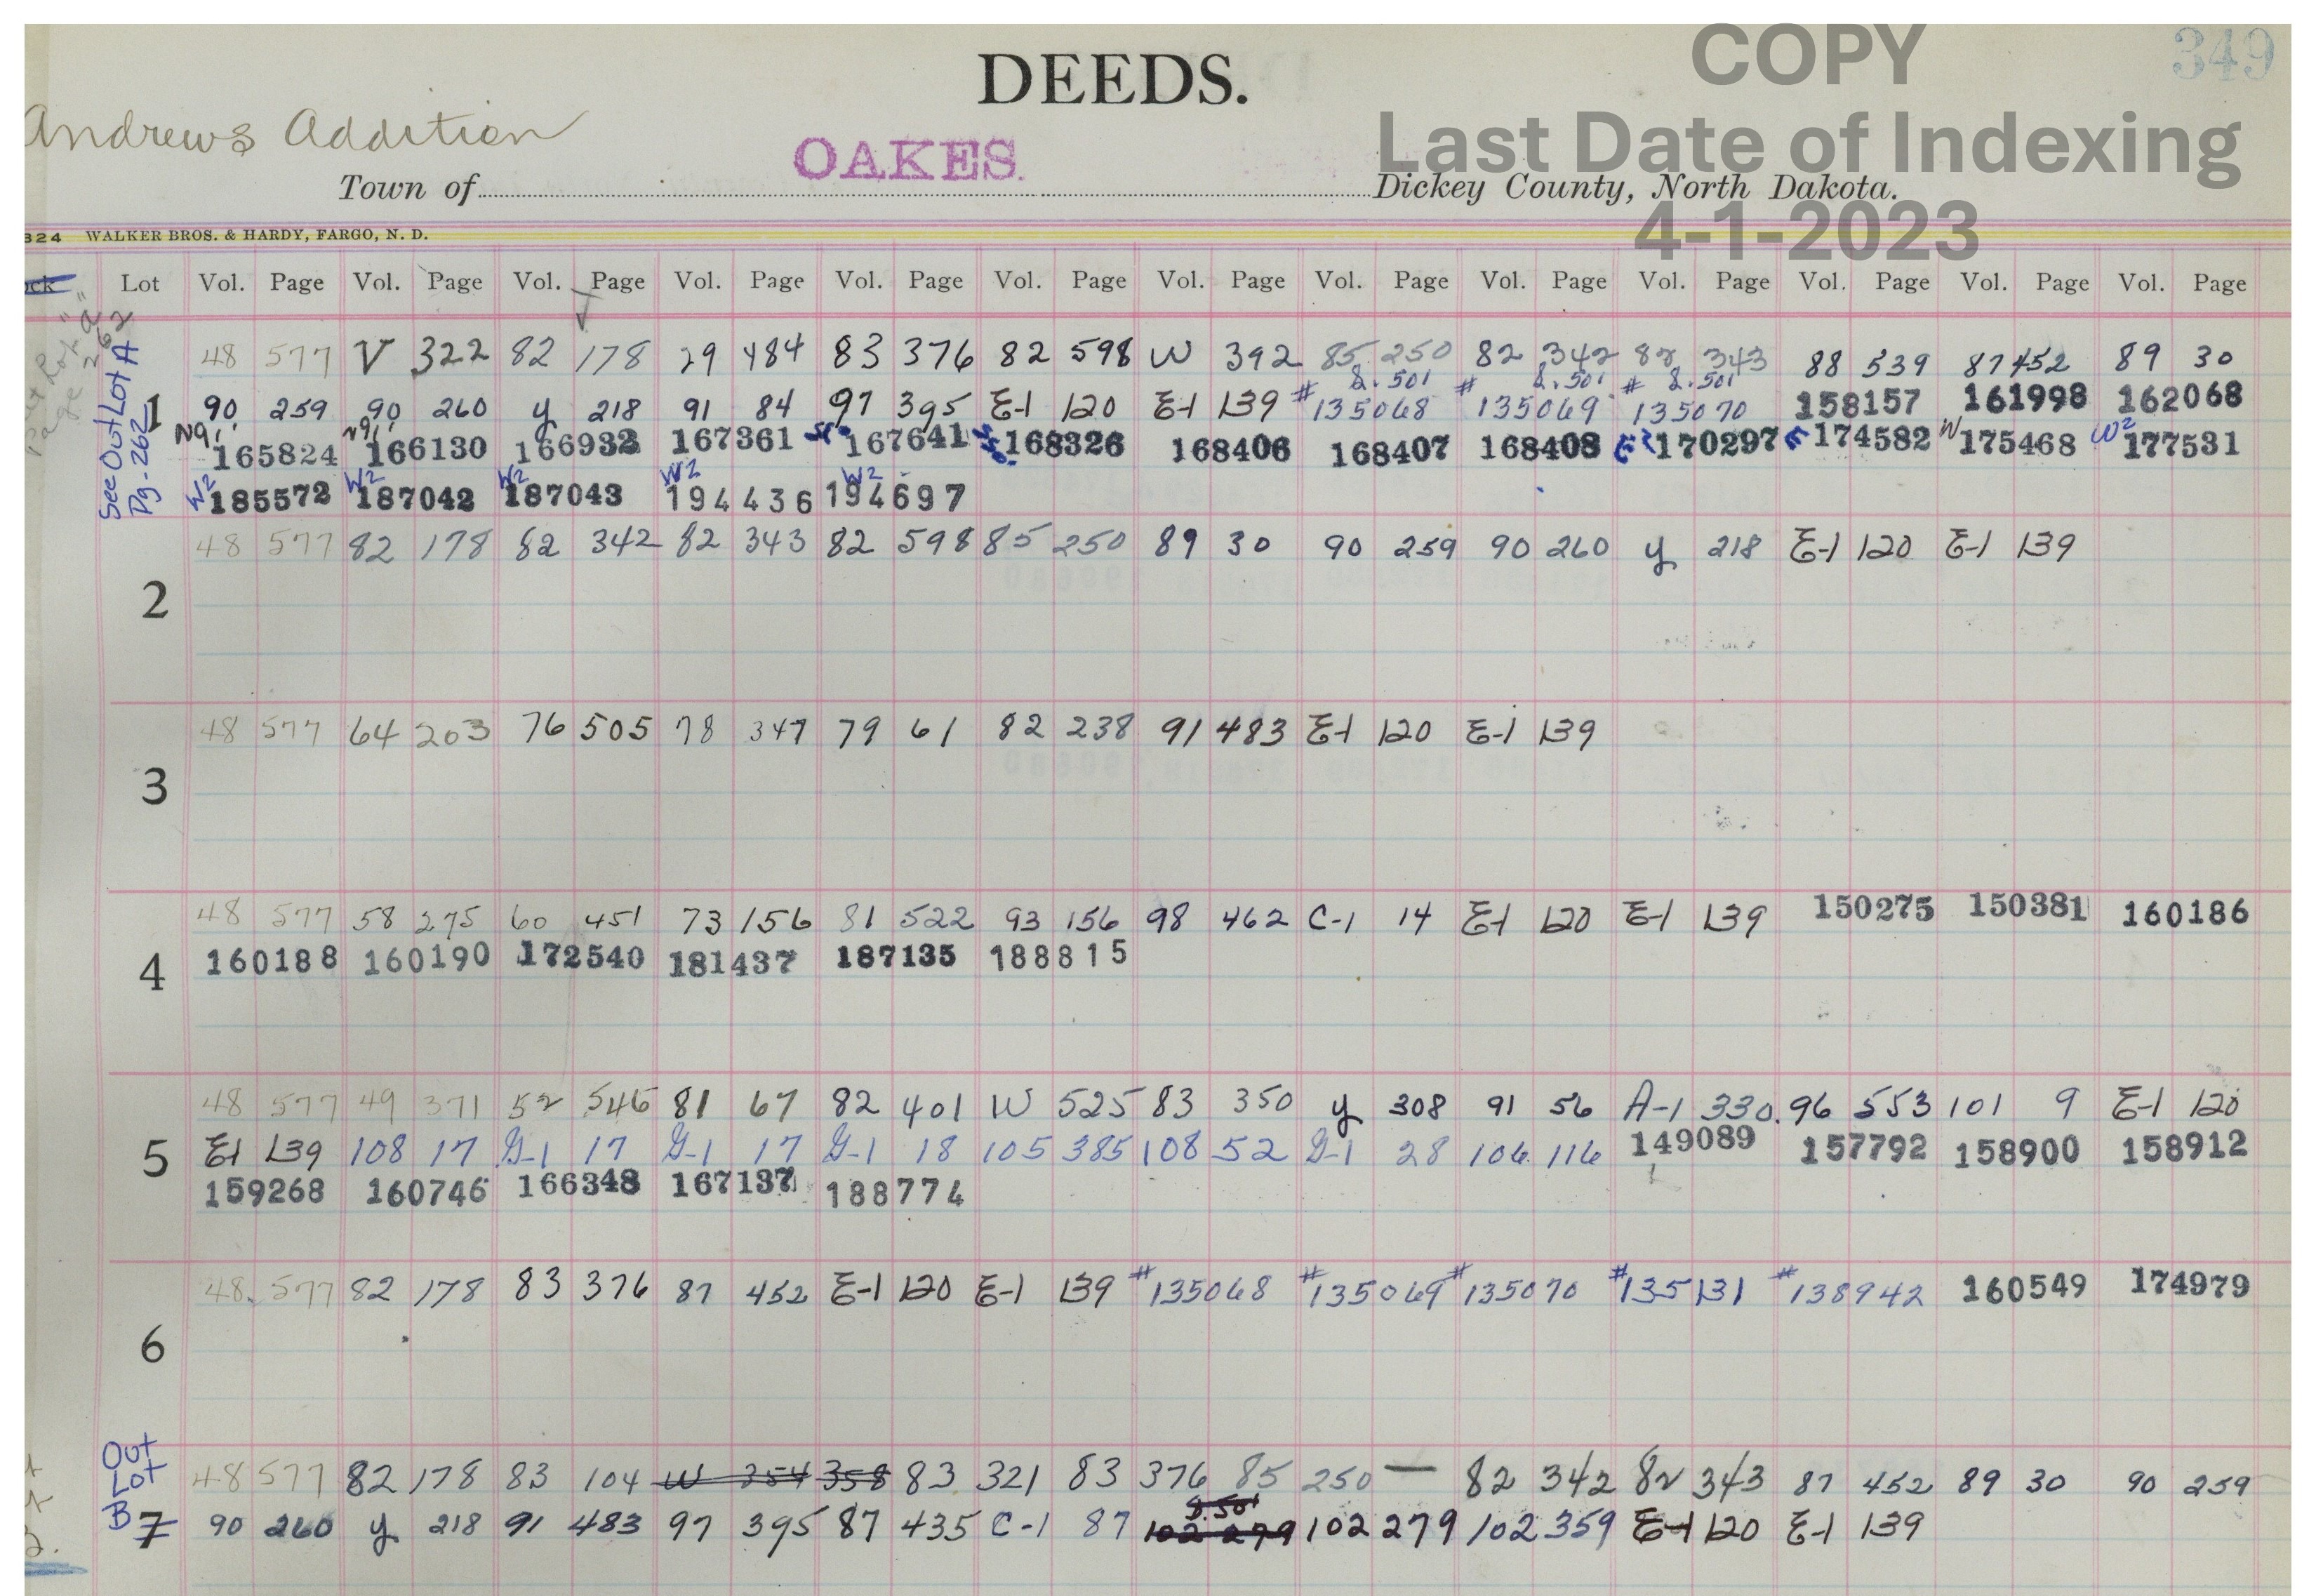 COPY
349
DEEDS.
Andrews Addition
Last Date of Indexing
OAKES.
Town of Dickey County, North Dakota.
4-1-2023
324 WALKER BROS. & HARDY, FARGO, N. D.
ock Lot Vol. Page Vol. Page Vol. Page Vol. Page Vol. Page Vol. Page Vol. Page Vol. Page Vol. Page Vol. Page Vol. Page Vol. Page Vol. Page
See Out Lot A
Pg-262
48 577 V 322 82 178 29 484 83 376 82 598 W 392 85 250 82 342 82 343 88 539 87 452 89 30
8.501 8.501 8.501
1 90 259 90 260 y 218 91 84 97 395 E-1 120 E-1 139 #135068 #135069 #135070 158157 161998 162068
N91' 165824 N91' 166130 166932 167361 167641 168326 168406 168407 168408 170297 174582 W 175468 W2 177531
W2 185572 W2 187042 W2 187043 W2 194436 W2 194697
48 577 82 178 82 342 82 343 82 598 85 250 89 30 90 259 90 260 y 218 E-1 120 E-1 139
2
48 577 64 203 76 505 78 347 79 61 82 238 91 483 E-1 120 E-1 139
3
48 577 58 275 60 451 73 156 81 522 93 156 98 462 C-1 14 E-1 120 E-1 139 150275 150381 160186
4 160188 160190 172540 181437 187135 188815
48 577 49 371 52 546 81 67 82 401 W 525 83 350 y 308 91 56 A-1 330 96 553 101 9 E-1 120
5 E-1 139 108 17 G-1 17 G-1 17 G-1 18 105 385 108 52 G-1 28 106 116 149089 157792 158900 158912
159268 160746 166348 167137 188774
48 577 82 178 83 376 87 452 E-1 120 E-1 139 #135068 #135069 #135070 #135131 #138942 160549 174979
6
Out
Lot
B
48 577 82 178 83 104 W 354 358 83 321 83 376 85 250 — 82 342 82 343 87 452 89 30 90 259
8.501
7 90 260 y 218 91 483 97 395 87 435 C-1 87 102 279 102 279 102 359 E-1 120 E-1 139